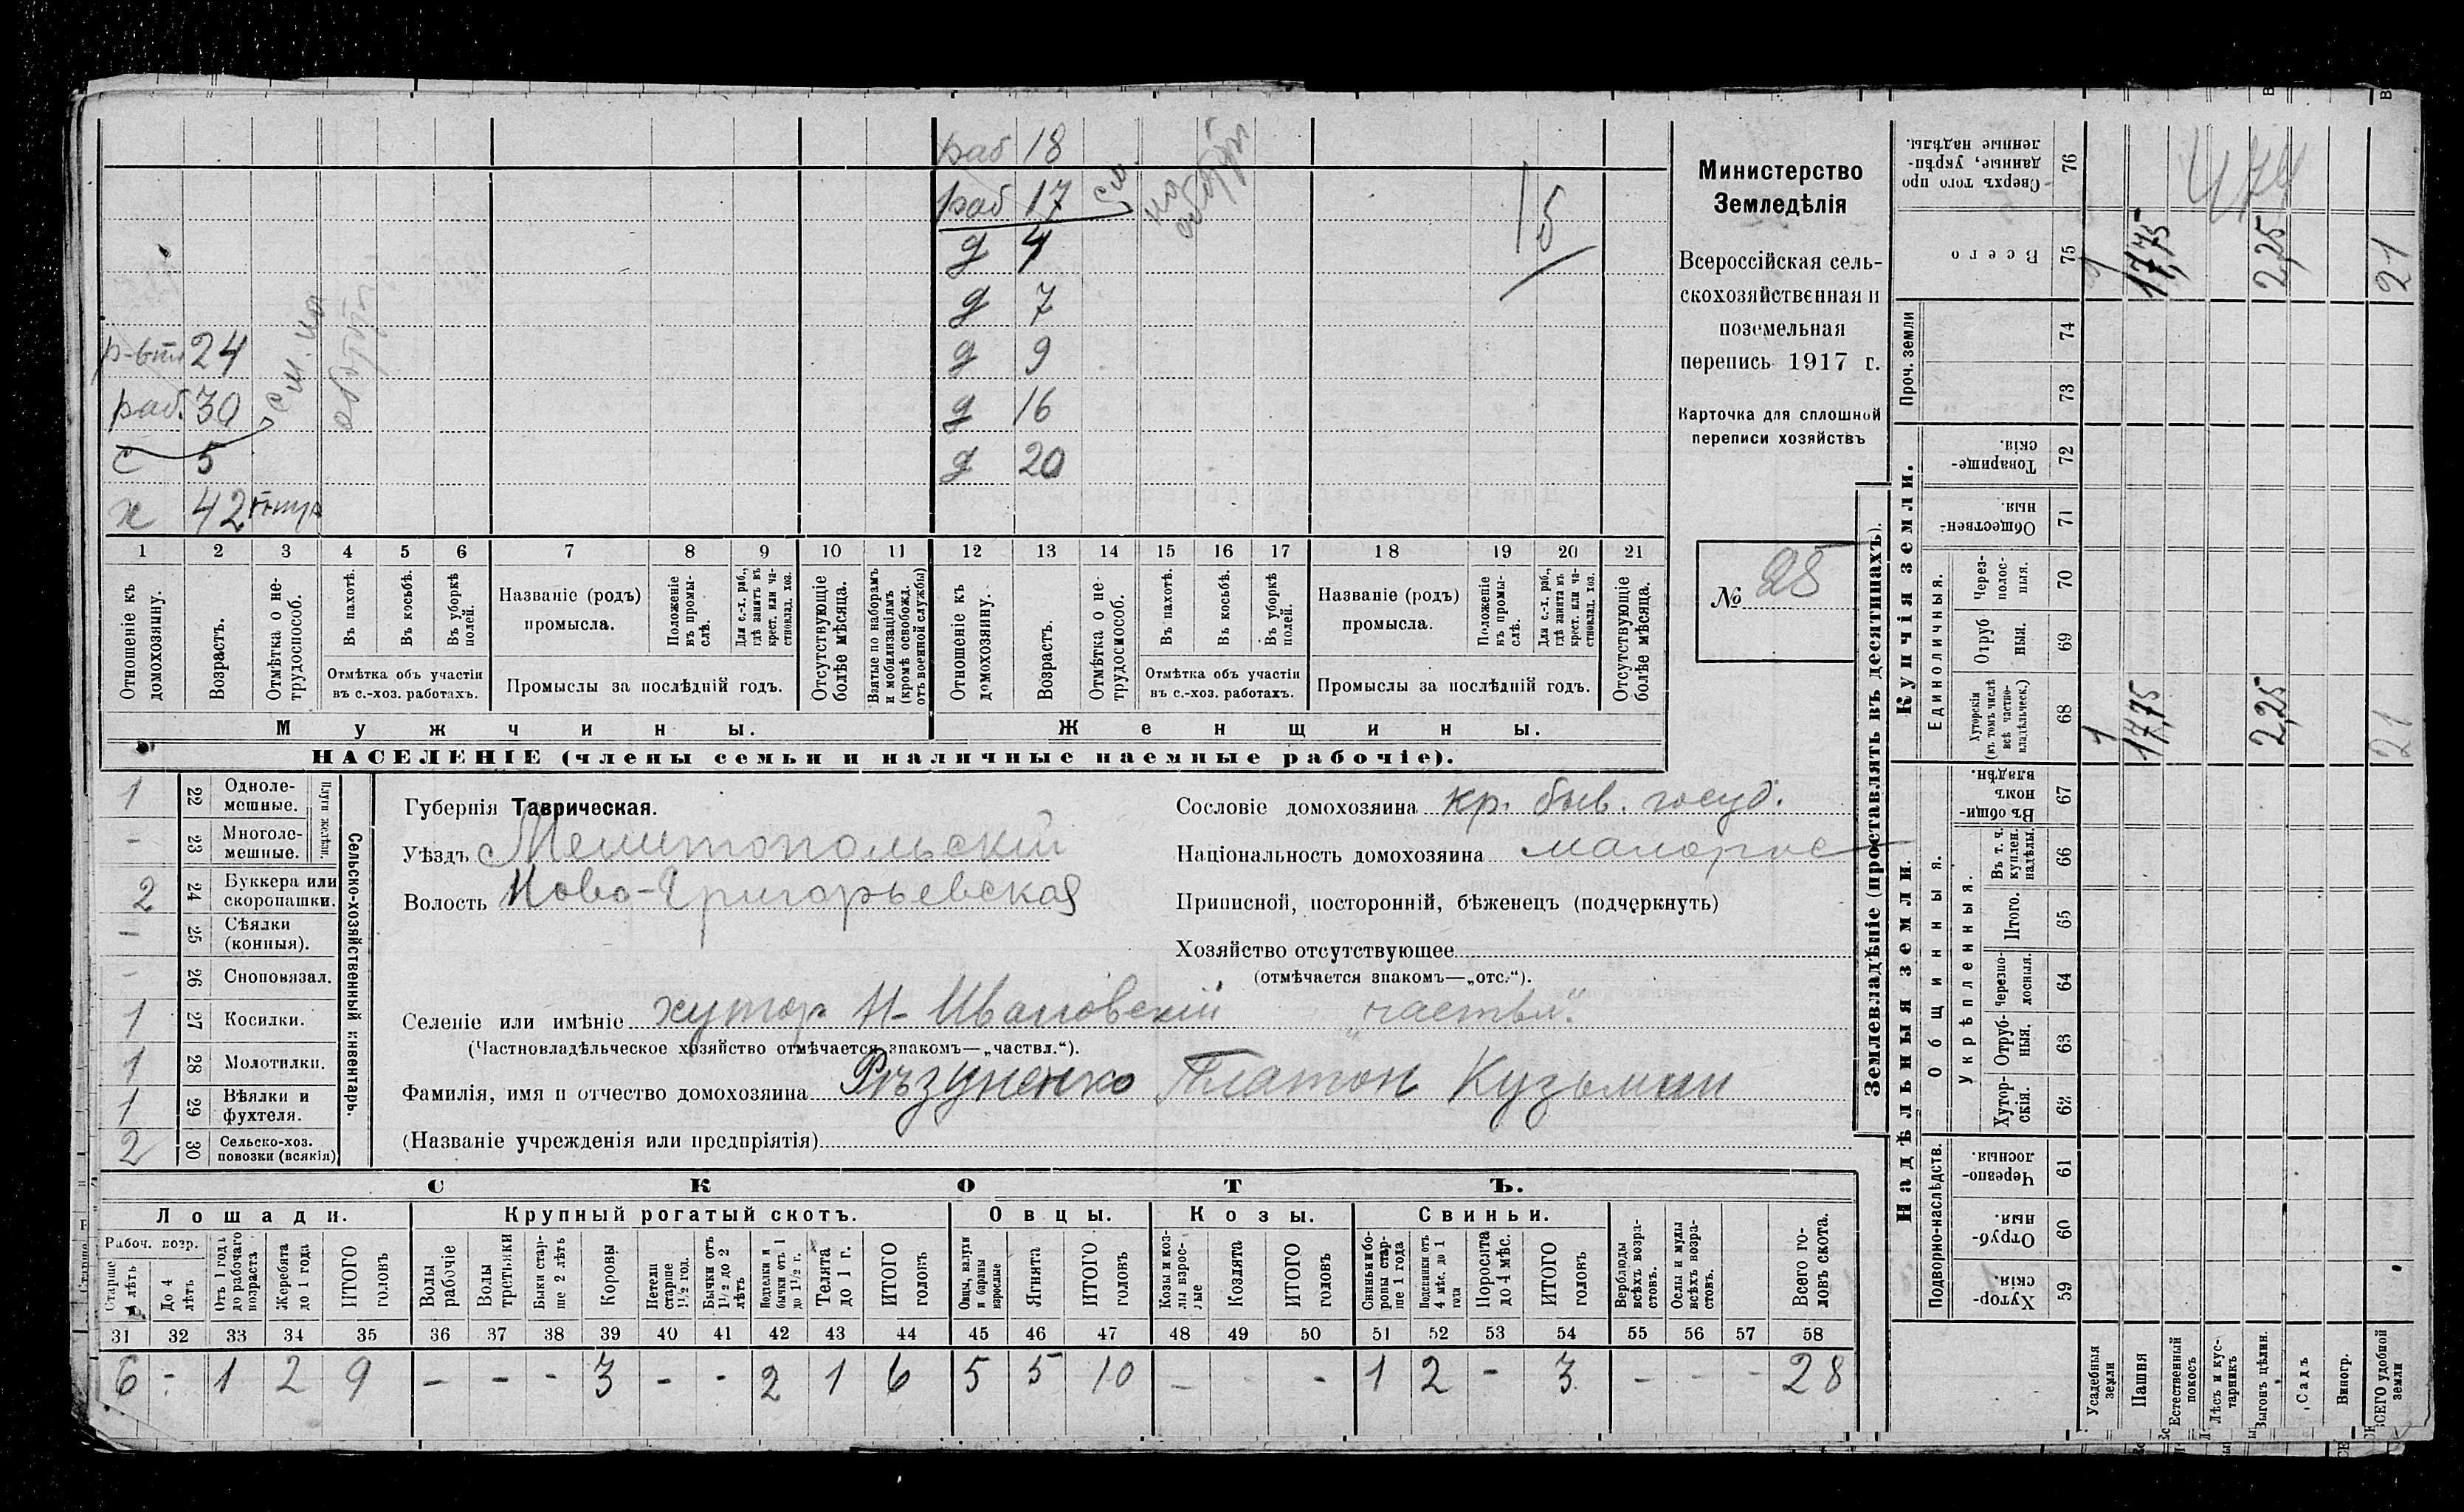 раб 18
раб 17 см. на оборот
д 4
д 7
д 9
д 16
д 20
15
24
раб. 30 см. на оборот
с 5
х 42
1 2 3 4 5 6 7 8 9 10 11 12 13 14 15 16 17 18 19 20 21
Отношеніе къ домохозяину.
Возрастъ.
Отмѣтка о нетрудоспособ.
Въ пахотѣ.
Въ косьбѣ.
Въ уборкѣ полей.
Отмѣтка объ участіи въ с.-хоз. работахъ.
Названіе (родъ) промысла.
Положеніе въ промыслѣ.
Для с.-х. раб., гдѣ занятъ въ крест. или частновлад. хоз.
Промыслы за послѣдній годъ.
Отсутствующіе болѣе мѣсяца.
Взятые по наборамъ и мобилизаціямъ (кромѣ освобожд. отъ военной службы)
Отношеніе къ домохозяину.
Возрастъ.
Отмѣтка о нетрудоспособ.
Въ пахотѣ.
Въ косьбѣ.
Въ уборкѣ полей.
Отмѣтка объ участіи въ с.-хоз. работахъ.
Названіе (родъ) промысла.
Положеніе въ промыслѣ.
Для с.-х. раб., гдѣ занята въ крест. или частновлад. хоз.
Промыслы за послѣдній годъ.
Отсутствующіе болѣе мѣсяца.
Мужчины.
Женщины.
НАСЕЛЕНІЕ (члены семьи и наличные наемные рабочіе).
Министерство
Земледѣлія
Всероссійская сель-
скохозяйственная и
поземельная
перепись 1917 г.
Карточка для сплошной
переписи хозяйствъ
№ 25
1 22 Одноле-мешные.
- 23 Многоле-мешные.
Плуги желѣзн.
2 24 Буккера или скоропашки.
- 25 Сѣялки (конныя).
- 26 Сноповязал.
1 27 Косилки.
1 28 Молотилки.
1 29 Вѣялки и фухтеля.
2 30 Сельско-хоз. повозки (всякія)
Сельско-хозяйственный инвентарь.
Губернія Таврическая.
Уѣздъ Мелитопольскій
Волость Ново-Григорьевская
Сословіе домохозяина кр. быв. госуд.
Національность домохозяина малорос
Приписной, посторонній, бѣженецъ (подчеркнуть)
Хозяйство отсутствующее
(отмѣчается знакомъ—„отс.“).
Селеніе или имѣніе хутор Н-Ивановскій „частвл.“
(Частновладѣльческое хозяйство отмѣчается знакомъ—„частвл.“).
Фамилія, имя и отчество домохозяина Рѣзуненко Платон Кузьмин
(Названіе учрежденія или предпріятія)
СКОТЪ.
Лошади. Крупный рогатый скотъ. Овцы. Козы. Свиньи.
Рабоч. возр.
Старше 4 лѣтъ
До 4 лѣтъ
Отъ 1 года до рабочаго возраста
Жеребята до 1 года
ИТОГО головъ
Волы рабочіе
Волы третьяки
Быки старше 2 лѣтъ
Коровы
Нетели старше 1½ год.
Бычки отъ 1½ до 2 лѣтъ
Подтелки и бычки отъ 1 до 1½ г.
Телята до 1 г.
ИТОГО головъ
Овцы, валухи и бараны взрослые
Ягнята
ИТОГО головъ
Козы и козлы взрослые
Козлята
ИТОГО головъ
Свиньи и боровы старше 1 года
Подсвинки отъ 4 мѣс. до 1 года
Поросята до 4 мѣс.
ИТОГО головъ
Верблюды всѣхъ возрастовъ.
Ослы и мулы всѣхъ возрастовъ.
Всего головъ скота.
31 32 33 34 35 36 37 38 39 40 41 42 43 44 45 46 47 48 49 50 51 52 53 54 55 56 57 58
6 - 1 2 9 - - - 3 - - 2 1 6 5 5 10 - - - 1 2 - 3 - - - 28
Землевладѣніе (проставлять въ десятинахъ).
Купчія земли.
Надѣльныя земли.
Сверхъ того проданные, укрѣпленные надѣлы. 76
Всего 75 1 17,75 2,25 21
Проч. земли 74 73
Товарищескія. 72
Общественныя. 71
Единоличныя.
Черезполосныя. 70
Отрубныя. 69
Хуторскія (въ томъ числѣ всѣ частновладѣльческ.) 68 1 17,75 2,25 21
Общинныя.
Въ общиномъ владѣн. 67
Укрѣпленныя.
Въ т. ч. куплен. надѣлы. 66
Итого. 65
Черезполосныя. 64
Отрубныя. 63
Хуторскія. 62
Подворно-наслѣдств.
Черезполосныя. 61
Отрубныя. 60
Хуторскія. 59
Усадебныя земли
Пашня
Естественный покосъ
Лѣсъ и кустарникъ
Выгонъ цѣлин.
Садъ
Виногр.
ВСЕГО удобной земли